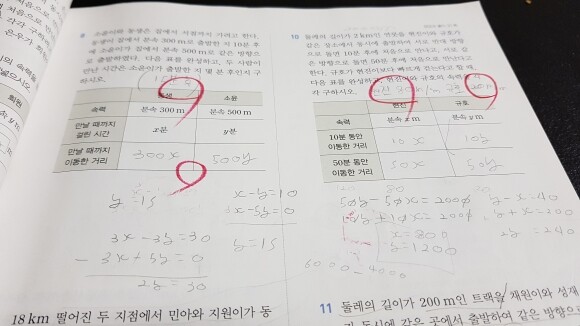 9 소윤이와 동생은 집에서 서점까지 가려고 한다.
동생이 집에서 분속 300 m로 출발한 지 10분 후
에 소윤이가 집에서 분속 500 m로 같은 방향으
로 출발하였다. 다음 표를 완성하고, 두 사람이
만난 시간은 소윤이가 출발한 지 몇 분 후인지 구
하시오.
동생 소윤
속력 분속 300 m 분속 500 m
만날 때까지 걸린 시간 x분 y분
만날 때까지 이동한 거리 300x 500y
y=15
x-y=10
3x-5y=0
3x-3y=30
- 3x+5y=0
2y=30
y=15
18 km 떨어진 두 지점에서 민아와 지원이가 동
10 둘레의 길이가 2 km인 연못을 현진이와 규호가
같은 장소에서 동시에 출발하여 서로 반대 방향
으로 돌면 10분 후에 처음으로 만나고, 서로 같
은 방향으로 돌면 50분 후에 처음으로 만난다고
한다. 규호가 현진이보다 빠르게 걷는다고 할 때,
다음 표를 완성하고, 현진이와 규호의 속력을 각
각 구하시오.
현진 규호
속력 분속 x m 분속 y m
10분 동안 이동한 거리 10x 10y
50분 동안 이동한 거리 50x 50y
50y-50x=2000
y-x=40
y+x=200
2y=240
x=800
y=1200
6000-4000
11 둘레의 길이가 200 m인 트랙을 재원이와 성재